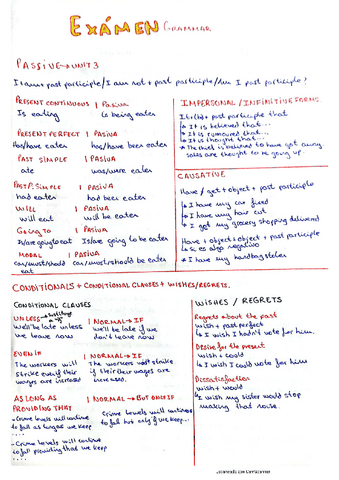 EXÁMEN GRAMMAR
PASSIVE → UNIT 3
I + am + past participle / I am not + past participle / Am I past participle?
PRESENT CONTINUOUS | PASIVA
Is eating is being eaten
PRESENT PERFECT | PASIVA
Has/have eaten has/have been eaten
PAST SIMPLE | PASIVA
ate was/were eaten
PAST P. SIMPLE | PASIVA
had eaten had been eaten
WILL | PASIVA
will eat will be eaten
GOING TO | PASIVA
Is/are going to eat Is/are going to be eaten
MODAL | PASIVA
can/must/should eat can/must/should be eaten
IMPERSONAL / INFINITIVE FORMS
past participle that
It is believed that...
It is rumoured that...
It is thought that...
The thief is believed to have got away
sales are thought to be going up.
CAUSATIVE
Have / get + object + past participle
I have my car fixed
I have my hair cut
I get my grocery shopping delivered
Have + object + object + past participle
Si es algo negativo
I have my handbag stolen
CONDITIONALS + CONDITIONAL CLAUSES + WISHES / REGRETS.
CONDITIONAL CLAUSES
UNLESS | NORMAL → IF
We'll be late unless we leave now
We'll be late if we don't leave now
EVEN IF | NORMAL → IF
The workers will strike even if their wages are increased
The workers won't strike if their wages are increased.
AS LONG AS | NORMAL → BUT ONLY IF
PROVIDING THAT
- Crime levels will continue to fall as long as we keep ....
Crime levels will continue to fall but only if we keep...
- Crime levels will continue to fall providing that we keep ....
WISHES / REGRETS
Regrets about the past
wish + past perfect
I wish I hadn't vote for him.
Desire for the present
wish + could
I wish I could vote for him
wish + would
I wish my sister would stop
making that noise.